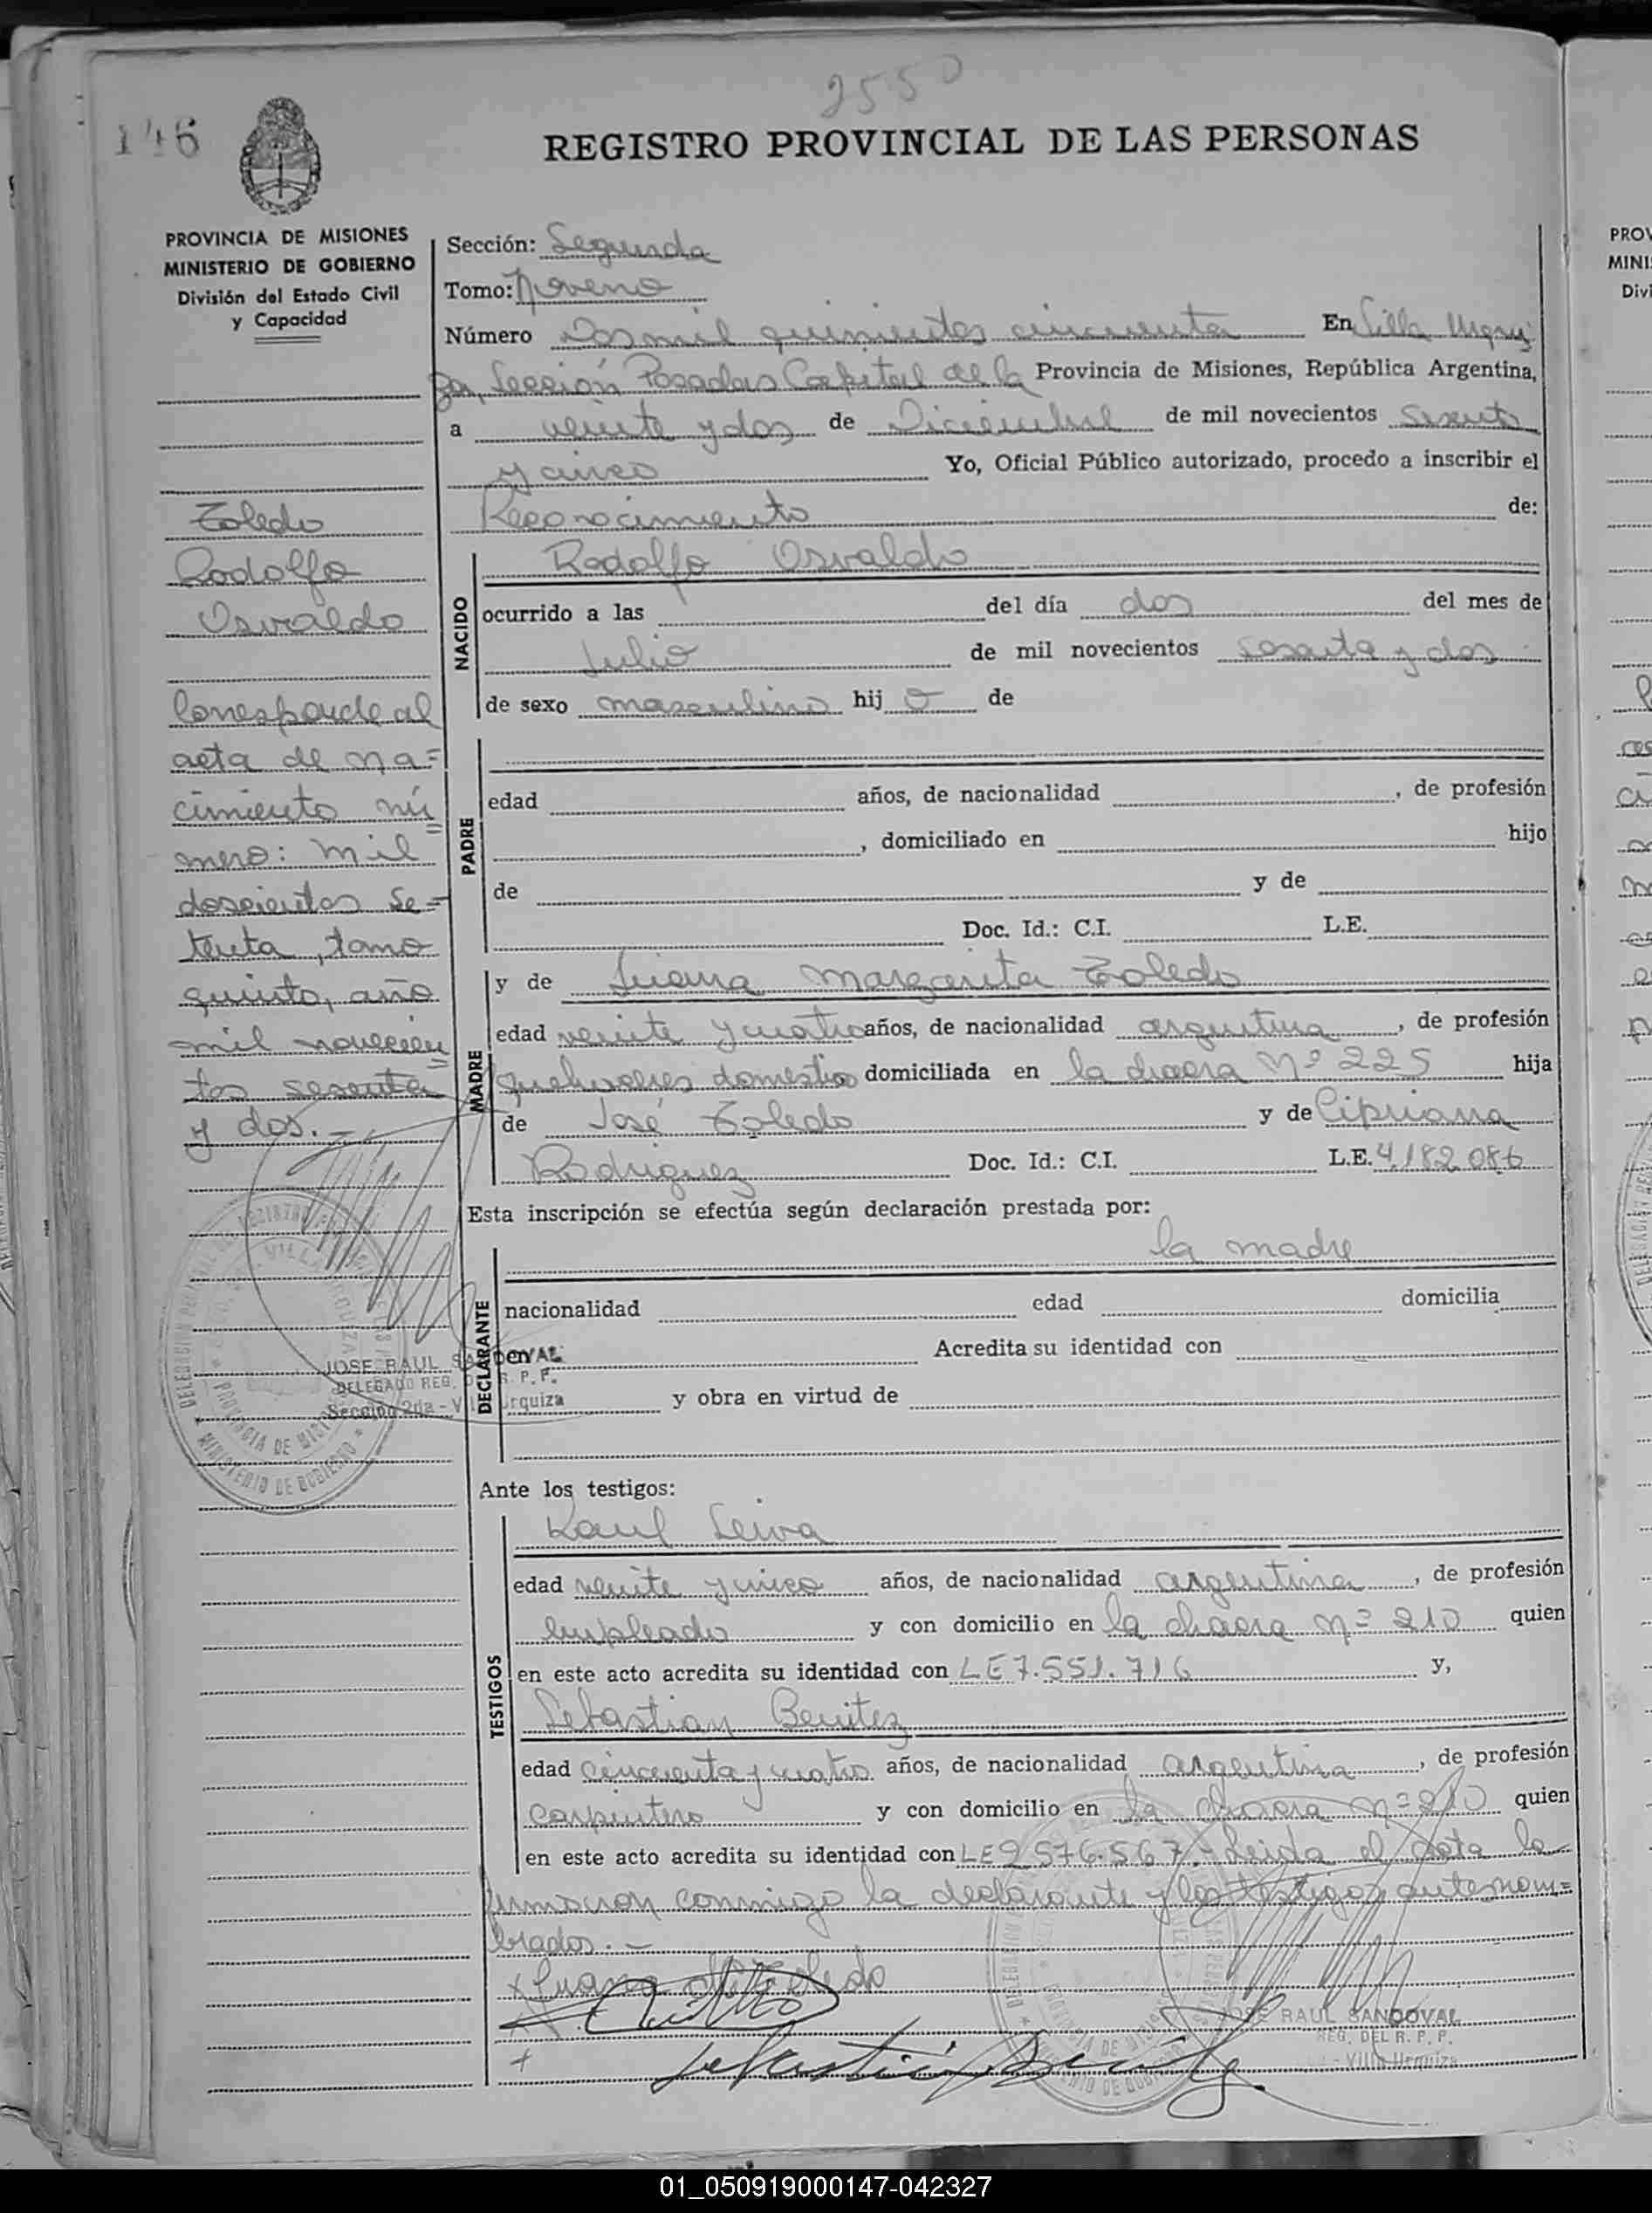 2550
146
REGISTRO PROVINCIAL DE LAS PERSONAS
PROVINCIA DE MISIONES
MINISTERIO DE GOBIERNO
División del Estado Civil
y Capacidad
Toledo
Rodolfo
Osvaldo
Corresponde al
acta de na=
cimiento nú=
mero: mil
doscientos se=
tenta, tomo
quinto, año
mil novecien=
tos sesenta
y dos.-
JOSE RAUL SANDOVAL
DELEGADO REG. DEL R. P. P.
Sección 2da - Villa Urquiza
Sección: Segunda
Tomo: Noveno
Número Dosmil quinientos cincuenta En Villa Urqui
za, Sección Posadas Capital de la Provincia de Misiones, República Argentina,
a veinte y dos de Diciembre de mil novecientos sesenta
y cinco Yo, Oficial Público autorizado, procedo a inscribir el
Reconocimiento de:
NACIDO
Rodolfo Osvaldo
ocurrido a las del día dos del mes de
Julio de mil novecientos sesenta y dos
de sexo masculino hij o de
PADRE
edad años, de nacionalidad , de profesión
, domiciliado en hijo
de y de
Doc. Id.: C.I. L.E.
MADRE
y de Juana Margarita Toledo
edad veinte y cuatro años, de nacionalidad argentina , de profesión
quehaceres domésticos domiciliada en la chacra Nº 225 hija
de José Toledo y de Cipriana
Rodriguez Doc. Id.: C.I. L.E. 4.182.086
Esta inscripción se efectúa según declaración prestada por:
DECLARANTE
la madre
nacionalidad edad domicilia
en Acredita su identidad con
y obra en virtud de
Ante los testigos:
TESTIGOS
Raul Leiva
edad veinte y cinco años, de nacionalidad argentina , de profesión
empleado y con domicilio en la chacra nº 210 quien
en este acto acredita su identidad con LE 7.551.716 y,
Sebastian Benitez
edad cincuenta y cuatro años, de nacionalidad argentina , de profesión
carpintero y con domicilio en la chacra nº 210 quien
en este acto acredita su identidad con LE 2.576.567.- Leida el acta la
firmaron conmigo la declarante y los testigos antenom=
brados.-
x Juana M Toledo
+ Sebastian Benitez
JOSE RAUL SANDOVAL
REG. DEL R. P. P.
- Villa Urquiza
PROV
MINI
Divi
01_050919000147-042327